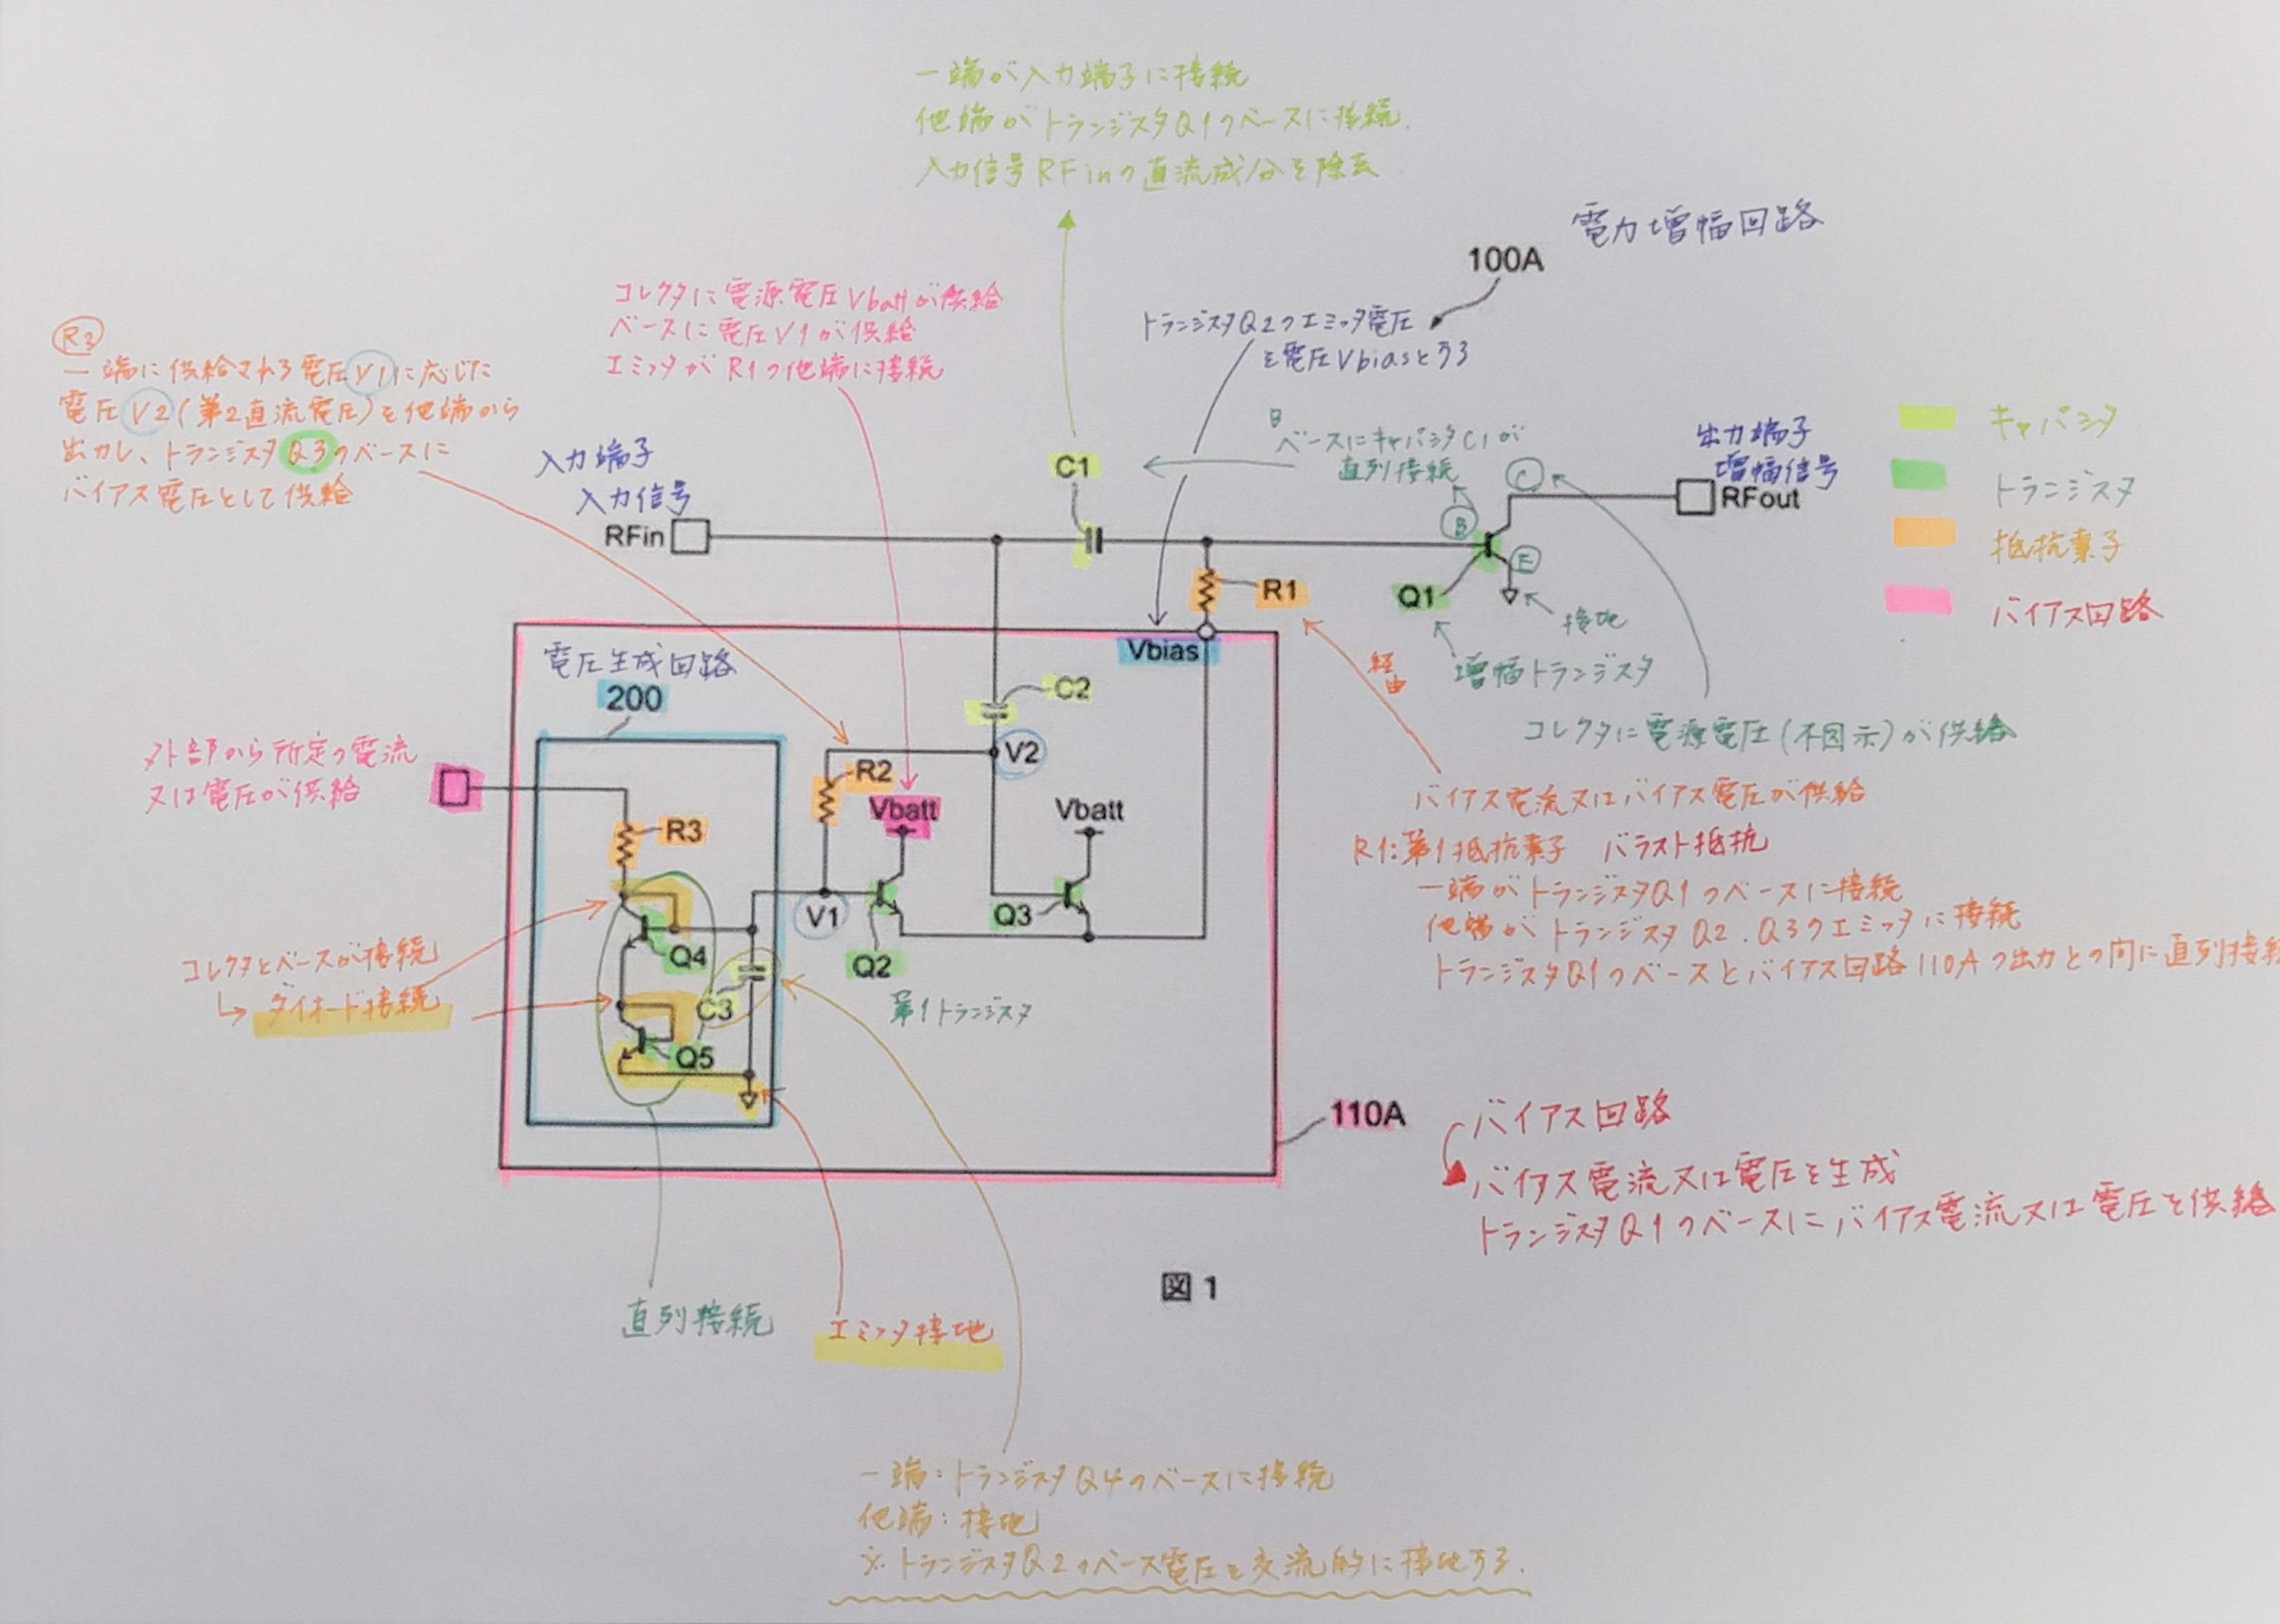 一端が入力端子に接続
他端がトランジスタQ1のベースに接続.
入力信号RFinの直流成分を除去.
電力増幅回路
100A
コレクタに電源電圧Vbattが供給
ベースに電圧V1が供給
エミッタがR1の他端に接続
トランジスタQ2のエミッタ電圧
を電圧Vbiasとする
R2
一端に供給される電圧V1に応じた
電圧V2(第2直流電圧)を他端から
出力し、トランジスタQ3のベースに
バイアス電圧として供給
入力端子
入力信号
RFin
C1
B
ベースにキャパシタC1が
直列接続
C
B
E
出力端子
増幅信号
RFout
キャパシタ
トランジスタ
抵抗素子
バイアス回路
R1
Q1
接地
増幅トランジスタ
コレクタに電源電圧(不図示)が供給
経由
Vbias
電圧生成回路
200
C2
V2
外部から所定の電流
又は電圧が供給
R2
R3
Vbatt
Vbatt
バイアス電流又はバイアス電圧が供給
R1:第1抵抗素子 バラスト抵抗
一端がトランジスタQ1のベースに接続
他端がトランジスタQ2.Q3のエミッタに接続
トランジスタQ1のベースとバイアス回路110Aの出力との間に直列接続
V1
Q3
Q4
Q2
第1トランジスタ
コレクタとベースが接続
↳ダイオード接続
C3
Q5
110A
バイアス回路
バイアス電流又は電圧を生成
トランジスタQ1のベースにバイアス電流又は電圧を供給
図1
直列接続
エミッタ接地
一端:トランジスタQ4のベースに接続
他端:接地
※トランジスタQ2のベース電圧を交流的に接地する.